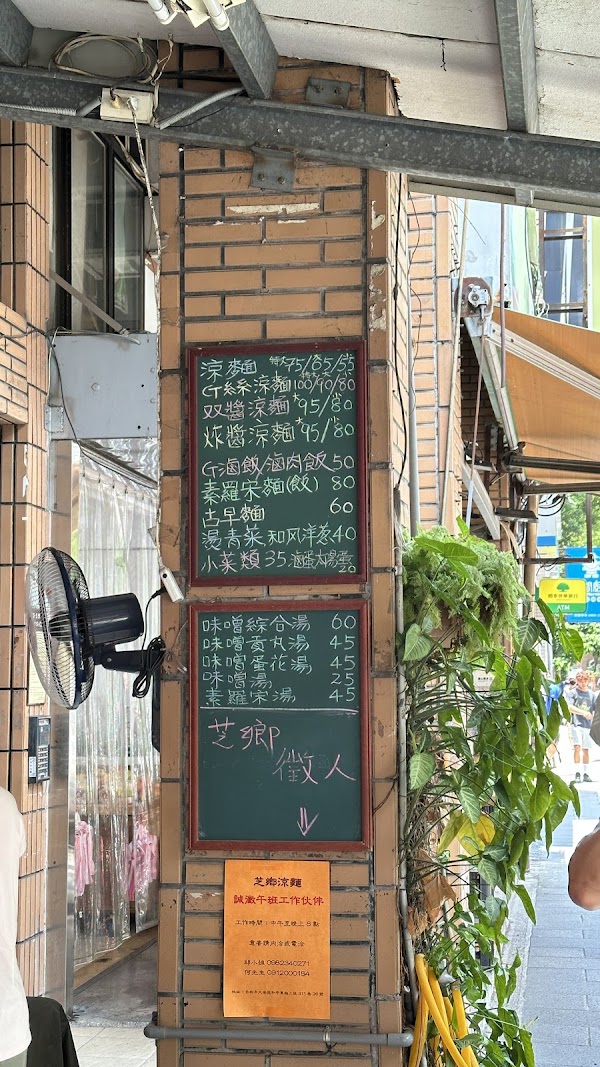 涼麵 特大75/大65/小55
G絲涼麵 特大100/大90/小80
双醬涼麵 大95/小80
炸醬涼麵 大95/小80
G滷飯/滷肉飯50
素羅宋麵(飯) 80
古早麵 60
燙青菜 和风洋葱40
小菜類35
20
味噌綜合湯 60
味噌貢丸湯 45
味噌蛋花湯 45
味噌湯 25
素羅宋湯 45
芝鄉
徵人
↓
芝鄉涼麵
誠徵午班工作伙伴
工作時間：中午至晚上8點
意者請內洽或電洽
林小姐 0982340271
何先生 0912000184
ATM